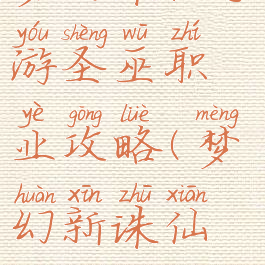 yóu shèng wū zhí
游圣巫职
yè gōng lüè mèng
业攻略(梦
huàn xīn zhū xiān
幻新诛仙